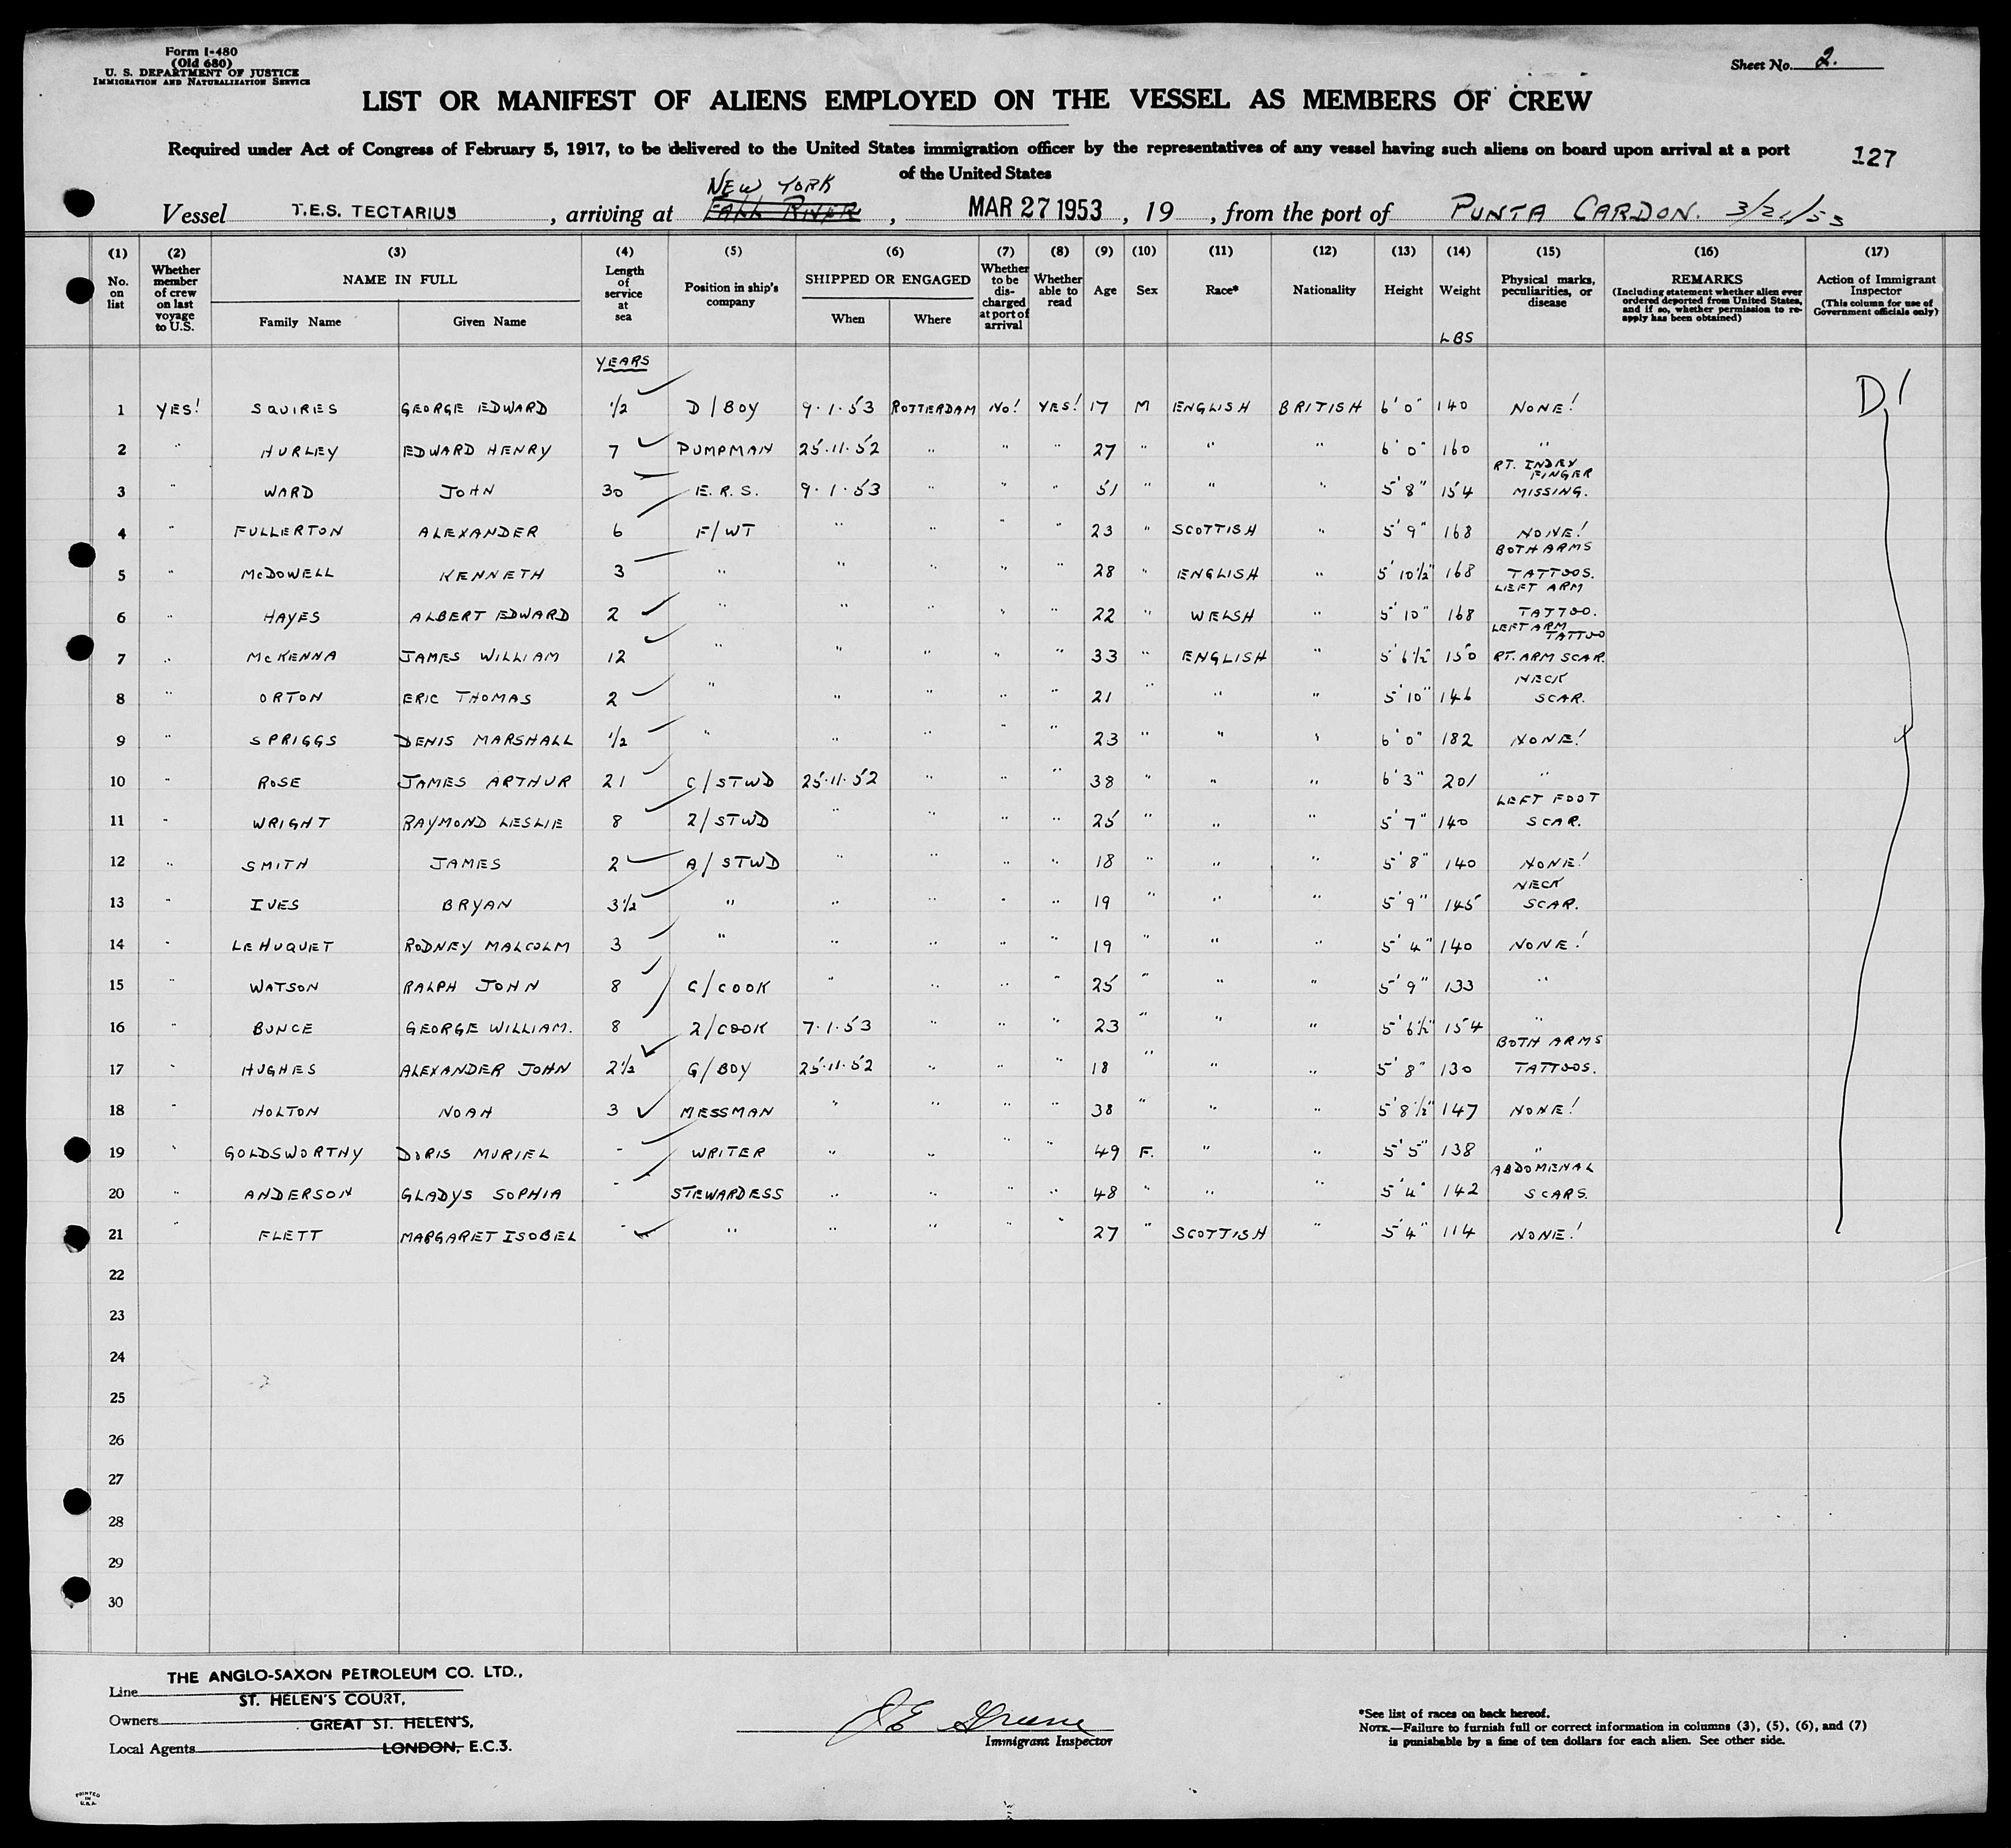 Form I-480
(Old 680)
U. S. DEPARTMENT OF JUSTICE
IMMIGRATION AND NATURALIZATION SERVICE
Sheet No. 2.
LIST OR MANIFEST OF ALIENS EMPLOYED ON THE VESSEL AS MEMBERS OF CREW
Required under Act of Congress of February 5, 1917, to be delivered to the United States immigration officer by the representatives of any vessel having such aliens on board upon arrival at a port
of the United States
127
NEW YORK
Vessel T.E.S. TECTARIUS, arriving at FALL RIVER, MAR 27 1953, 19, from the port of PUNTA CARDON. 3/21/53
(1) (2) (3) (4) (5) (6) (7) (8) (9) (10) (11) (12) (13) (14) (15) (16) (17)
No. on list
Whether member of crew on last voyage to U.S.
NAME IN FULL
Family Name
Given Name
Length of service at sea
Position in ship's company
SHIPPED OR ENGAGED
When
Where
Whether to be discharged at port of arrival
Whether able to read
Age
Sex
Race*
Nationality
Height
Weight
LBS
Physical marks, peculiarities, or disease
REMARKS
(Including statement whether alien ever ordered deported from United States, and if so, whether permission to re-apply has been obtained)
Action of Immigrant Inspector
(This column for use of Government officials only)
YEARS
D!
1 YES! SQUIRES GEORGE EDWARD 1/2 D/BOY 9.1.53 ROTTERDAM NO! YES! 17 M ENGLISH BRITISH 6'0" 140 NONE!
2 " HURLEY EDWARD HENRY 7 PUMPMAN 25.11.52 " " " 27 " " " 6'0" 160 "
3 " WARD JOHN 30 E.R.S. 9.1.53 " " " 51 " " " 5'8" 154 RT. INDEX FINGER MISSING.
4 " FULLERTON ALEXANDER 6 F/WT " " " " 23 " SCOTTISH " 5'9" 168 NONE!
5 " McDOWELL KENNETH 3 " " " " " 28 " ENGLISH " 5'10½" 168 BOTH ARMS TATTOOS.
6 " HAYES ALBERT EDWARD 2 " " " " " 22 " WELSH " 5'10" 168 LEFT ARM TATTOO.
7 " McKENNA JAMES WILLIAM 12 " " " " " 33 " ENGLISH " 5'6½" 150 LEFT ARM TATTOO RT. ARM SCAR.
8 " ORTON ERIC THOMAS 2 " " " " " 21 " " " 5'10" 146 NECK SCAR.
9 " SPRIGGS DENIS MARSHALL 1/2 " " " " " 23 " " " 6'0" 182 NONE!
10 " ROSE JAMES ARTHUR 21 C/STWD 25.11.52 " " " 38 " " " 6'3" 201 "
11 " WRIGHT RAYMOND LESLIE 8 2/STWD " " " " 25 " " " 5'7" 140 LEFT FOOT SCAR.
12 " SMITH JAMES 2 A/STWD " " " " 18 " " " 5'8" 140 NONE!
13 " IVES BRYAN 3½ " " " " " 19 " " " 5'9" 145 NECK SCAR.
14 " LE HUQUET RODNEY MALCOLM 3 " " " " " 19 " " " 5'4" 140 NONE!
15 " WATSON RALPH JOHN 8 C/COOK " " " " 25 " " " 5'9" 133 "
16 " BUNCE GEORGE WILLIAM. 8 2/COOK 7.1.53 " " " 23 " " " 5'6½" 154 "
17 " HUGHES ALEXANDER JOHN 2½ G/BOY 25.11.52 " " " 18 " " " 5'8" 130 BOTH ARMS TATTOOS.
18 " HOLTON NOAH 3 MESSMAN " " " " 38 " " " 5'8½" 147 NONE!
19 " GOLDSWORTHY DORIS MURIEL - WRITER " " " " 49 F. " " 5'5" 138 "
20 " ANDERSON GLADYS SOPHIA - STEWARDESS " " " " 48 " " " 5'4" 142 ABDOMENAL SCARS.
21 " FLETT MARGARET ISOBEL - " " " " " 27 " SCOTTISH " 5'4" 114 NONE!
22
23
24
25
26
27
28
29
30
THE ANGLO-SAXON PETROLEUM CO. LTD.,
Line
ST. HELEN'S COURT,
Owners
GREAT ST. HELEN'S,
Local Agents LONDON, E.C.3.
J E Greene
Immigrant Inspector
*See list of races on back hereof.
NOTE.—Failure to furnish full or correct information in columns (3), (5), (6), and (7)
is punishable by a fine of ten dollars for each alien. See other side.
PRINTED
IN
U.S.A.